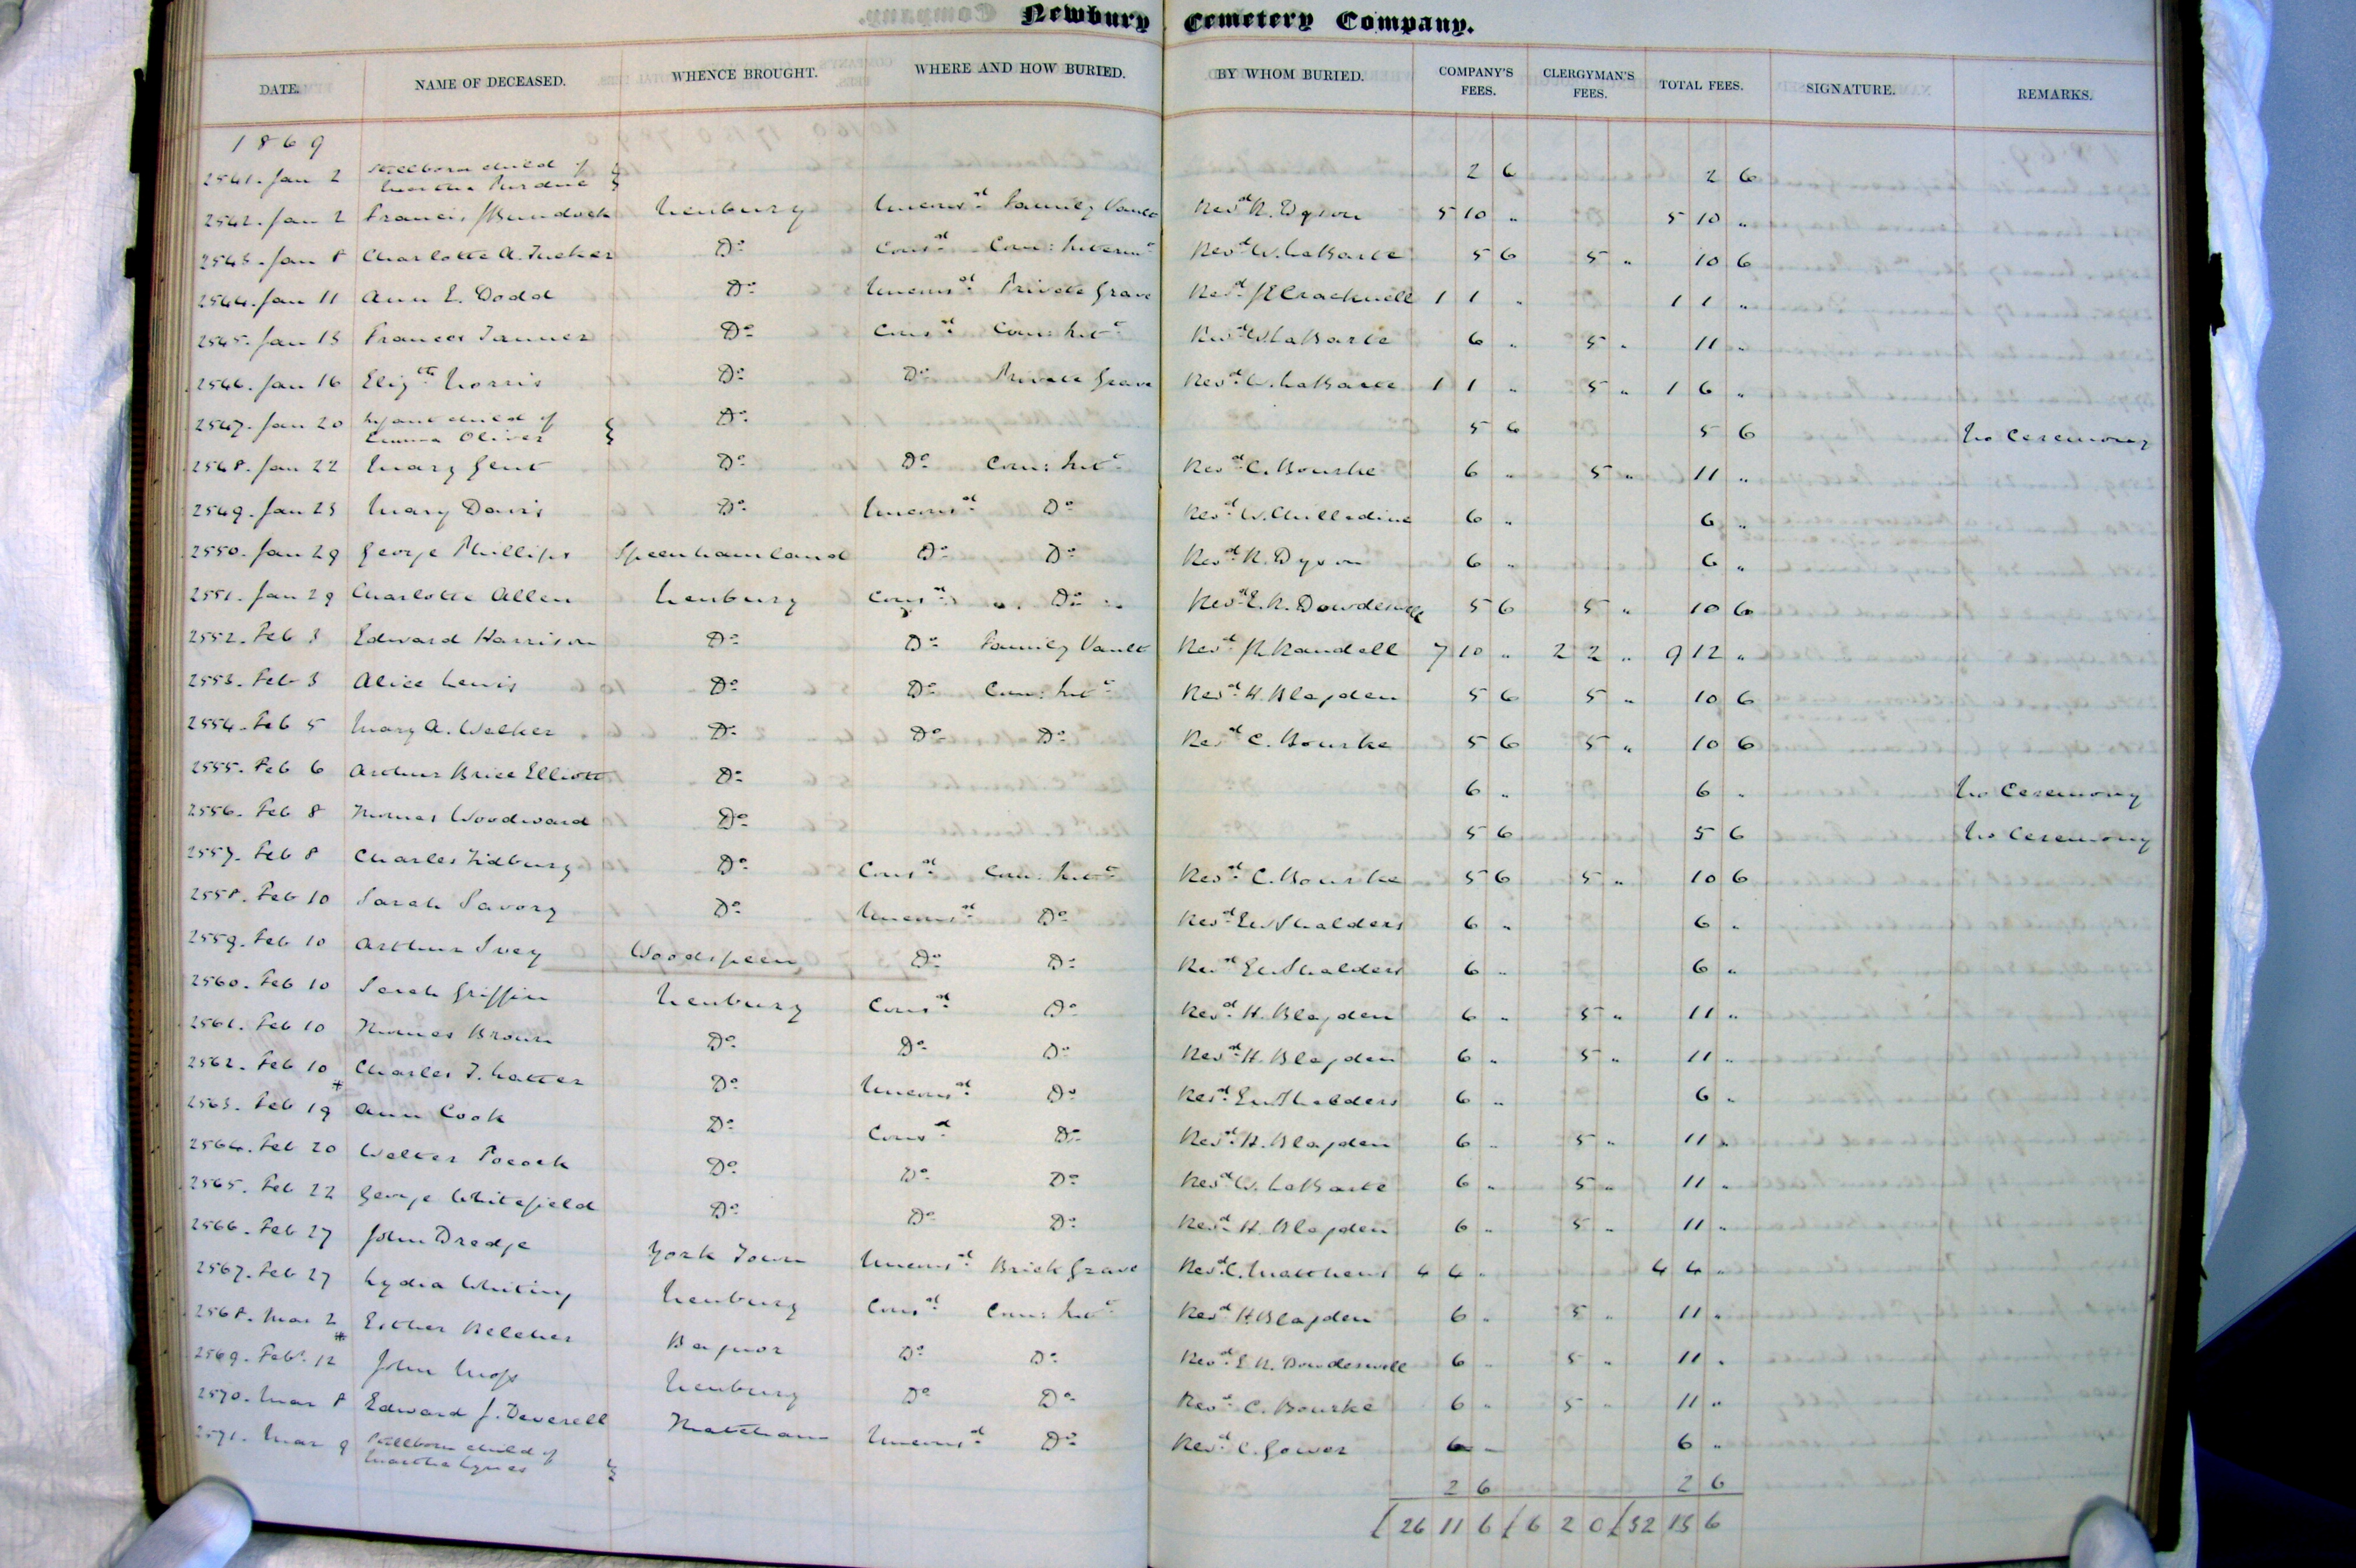 Newbury Cemetery Company.
DATE. NAME OF DECEASED. WHENCE BROUGHT. WHERE AND HOW BURIED. BY WHOM BURIED. COMPANY'S FEES. CLERGYMAN'S FEES. TOTAL FEES. SIGNATURE. REMARKS.
1869
2541. Jan 2 Stillborn child of Martha Purdue 2 6 2 6
2542. Jan 2 Francis J Bundock Newbury Uncons.d Family Vault Rev.d R. Dyson 5 10 " 5 10 "
2543. Jan 8 Charlotte A. Tucker Do Cons.d Com: Interm.t Rev.d W. LaBarte 5 6 5 " 10 6
2544. Jan 11 Ann E. Dodd Do Uncons.d Private Grave Rev.d J E Cracknell 1 1 " 1 1 "
2545. Jan 13 Frances Tanner Do Cons.d Com: Int.t Rev.d W. LaBarte 6 " 5 " 11 "
2546. Jan 16 Eliz.th Norris Do Do Private Grave Rev.d W. LaBarte 1 1 " 5 " 1 6 "
2547. Jan 20 Infant child of Emma Oliver Do 5 6 5 6 No Ceremony
2548. Jan 22 Mary Gent Do Do Com: Int.t Rev.d C. Bourke 6 " 5 " 11 "
2549. Jan 25 Mary Davis Do Uncons.d Do Rev.d W. Chilledine 6 " 6 "
2550. Jan 29 George Phillips Speenhamland Do Do Rev.d R. Dyson 6 " 6 "
2551. Jan 29 Charlotte Allen Newbury Cons.d Do Rev.d E. R. Dowdeswell 5 6 5 " 10 6
2552. Feb 3 Edward Harrison Do Do Family Vault Rev.d J L Randell 7 10 " 2 2 " 9 12 "
2553. Feb 3 Alice Lewis Do Do Com: Int.t Rev.d H. Blagden 5 6 5 " 10 6
2554. Feb 5 Mary A. Walker Do Do Do Rev.d C. Bourke 5 6 5 " 10 6
2555. Feb 6 Arthur Brice Elliott Do 6 " 6 " No Ceremony
2556. Feb 8 Thomas Woodward Do 5 6 5 6 No Ceremony
2557. Feb 8 Charles Tidbury Do Cons.d Com: Int.t Rev.d C. Bourke 5 6 5 " 10 6
2558. Feb 10 Sarah Savory Do Uncons.d Do Rev.d E W Shalders 6 " 6 "
2559. Feb 10 Arthur Ivey Woodspeen Do Do Rev.d E W Shalders 6 " 6 "
2560. Feb 10 Sarah Griffin Newbury Cons.d Do Rev.d H. Blagden 6 " 5 " 11 "
2561. Feb 10 Thomas Brown Do Do Do Rev.d H. Blagden 6 " 5 " 11 "
2562. Feb 10 Charles T. Latter Do Uncons.d Do Rev.d E W Shalders 6 " 6 "
2563. Feb 19 Ann Cook Do Cons.d Do Rev.d H. Blagden 6 " 5 " 11 "
2564. Feb 20 Walter Pocock Do Do Do Rev.d W. LaBarte 6 " 5 " 11 "
2565. Feb 22 George Whitefield Do Do Do Rev.d H. Blagden 6 " 5 " 11 "
2566. Feb 27 John Dredge York Town Uncons.d Brick Grave Rev.d C. Matthews 4 4 " 4 4 "
2567. Feb 27 Lydia Whiting Newbury Cons.d Com: Int.t Rev.d H Blagden 6 " 5 " 11 "
2568. Mar 2 Esther Belcher Bagnor Do Do Rev.d E R. Dowdeswell 6 " 5 " 11 "
2569. Feb. 12 John Moss Newbury Do Do Rev.d C. Bourke 6 " 5 " 11 "
2570. Mar 8 Edward J. Deverell Thatcham Uncons.d Do Rev.d C. Gower 6 " 6 "
2571. Mar 9 Stillborn child of Martha Lynes 2 6 2 6
£ 26 11 6 £ 6 2 0 £ 32 13 6